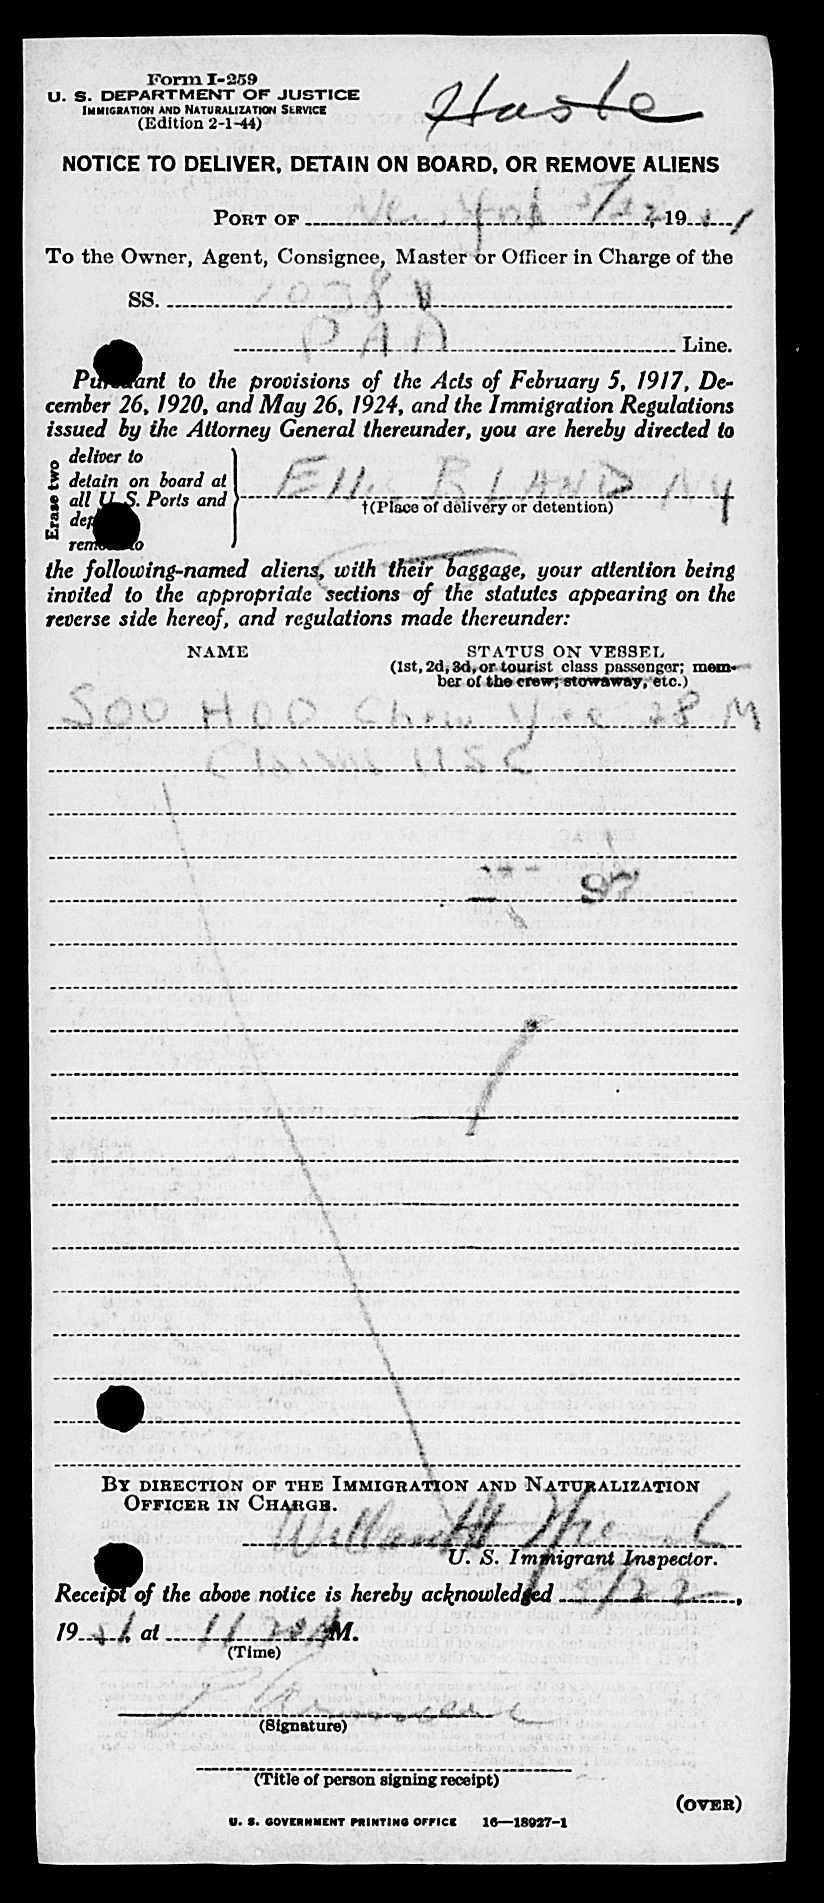 Form I-259
U. S. DEPARTMENT OF JUSTICE
IMMIGRATION AND NATURALIZATION SERVICE
(Edition 2-1-44)
Haste
NOTICE TO DELIVER, DETAIN ON BOARD, OR REMOVE ALIENS
PORT OF New York 5/22, 1951
To the Owner, Agent, Consignee, Master or Officer in Charge of the
SS. 1038 V
PAA Line.
Pursuant to the provisions of the Acts of February 5, 1917, De-
cember 26, 1920, and May 26, 1924, and the Immigration Regulations
issued by the Attorney General thereunder, you are hereby directed to
Erase two
deliver to
detain on board at
all U. S. Ports and
remove to
Ellis ISLAND NY
†(Place of delivery or detention)
the following-named aliens, with their baggage, your attention being
invited to the appropriate sections of the statutes appearing on the
reverse side hereof, and regulations made thereunder:
NAME STATUS ON VESSEL
(1st, 2d, 3d, or tourist class passenger; mem-
ber of the crew; stowaway, etc.)
SOO HOO Chew Yee 28 M
Claims USC
BY DIRECTION OF THE IMMIGRATION AND NATURALIZATION
OFFICER IN CHARGE.
U. S. Immigrant Inspector.
Receipt of the above notice is hereby acknowledged 5/22,
1951, at 11 M.
(Time)
(Signature)
(Title of person signing receipt)
(OVER)
U. S. GOVERNMENT PRINTING OFFICE 16—18027-1